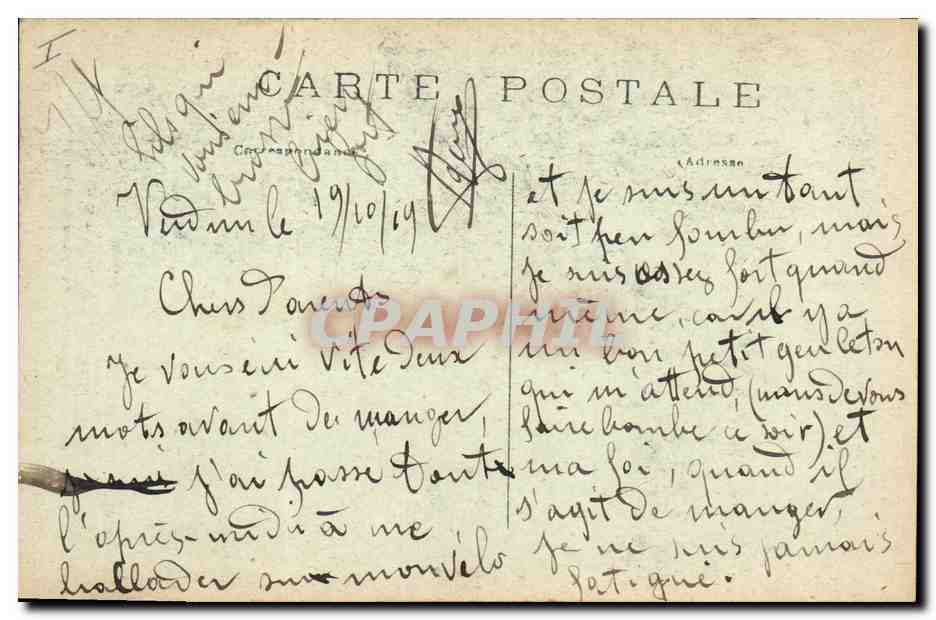 I
CARTE POSTALE
Correspondance
Adresse
fils qui
vous aime
bien
fort
Verdun le 19/10/19
Chers Parents
Je vous écri vite deux
mots avant de manger,
j'ai passe toute
l'après-midi à me
ballader sur mon vélo
et je suis un tant
soit peu fourbu, mais
je suis assez fort quand
même, car il y a
un bon petit gueuleton
qui m'attend, (nous devons
faire bombe ce soir) et
ma foi, quand il
s'agit de manger,
je ne suis jamais
fatigué.
CPAPHIL